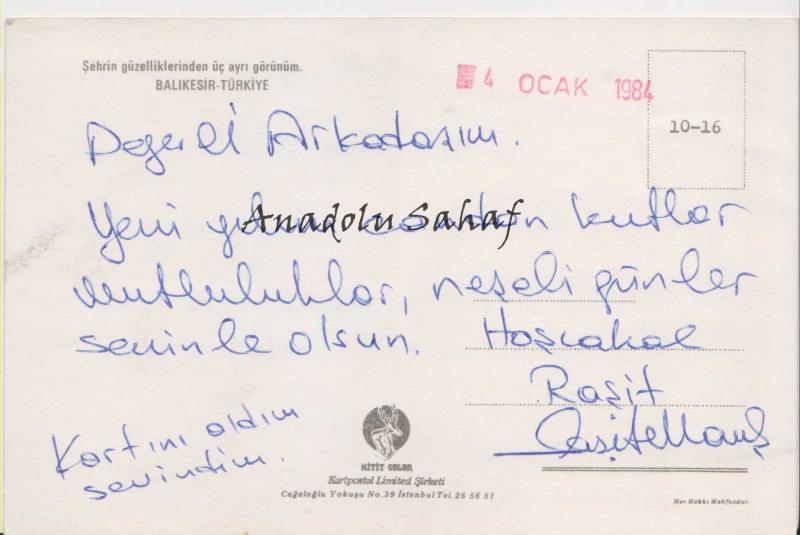 Şehrin güzelliklerinden üç ayrı görünüm.
BALIKESİR-TÜRKİYE
4 OCAK 1984
10-16
Değerli Arkadaşım.
Yeni yılını candan kutlar
Anadolu Sahaf
mutluluklar, neşeli günler
seninle olsun. Hoşcakal
Raşit
Kartını aldım
sevindim.
HİTİT COLOR
Kartpostal Limited Şirketi
Cağaloğlu Yokuşu No.39 İstanbul Tel. 26 56 51
Her Hakkı Mahfuzdur.